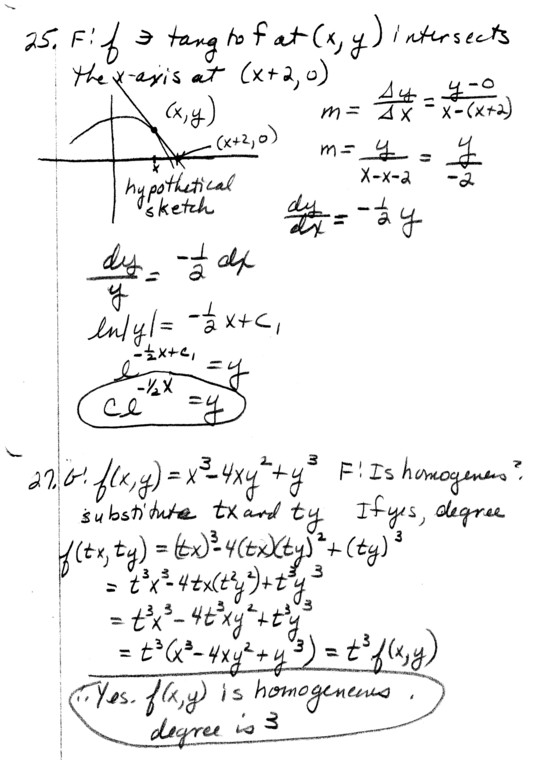 25. F: f ∋ tang to f at (x, y) intersects
the x-axis at (x+2, 0)
(x, y)
(x+2, 0)
x
hypothetical
sketch
m = Δy/Δx = y-0/x-(x+2)
m = y/x-x-2 = y/-2
dy/dx = -1/2 y
dy/y = -1/2 dx
ln|y| = -1/2 x + C₁
e^(-1/2x+C₁) = y
Ce^(-1/2x) = y
27. G: f(x,y) = x³-4xy²+y³ F: Is homogeneus?
substitute tx and ty If yes, degree
f(tx, ty) = (tx)³-4(tx)(ty)²+(ty)³
= t³x³-4tx(t²y²)+t³y³
= t³x³-4t³xy²+t³y³
= t³(x³-4xy²+y³) = t³f(x,y)
∴ Yes. f(x,y) is homogeneus.
degree is 3